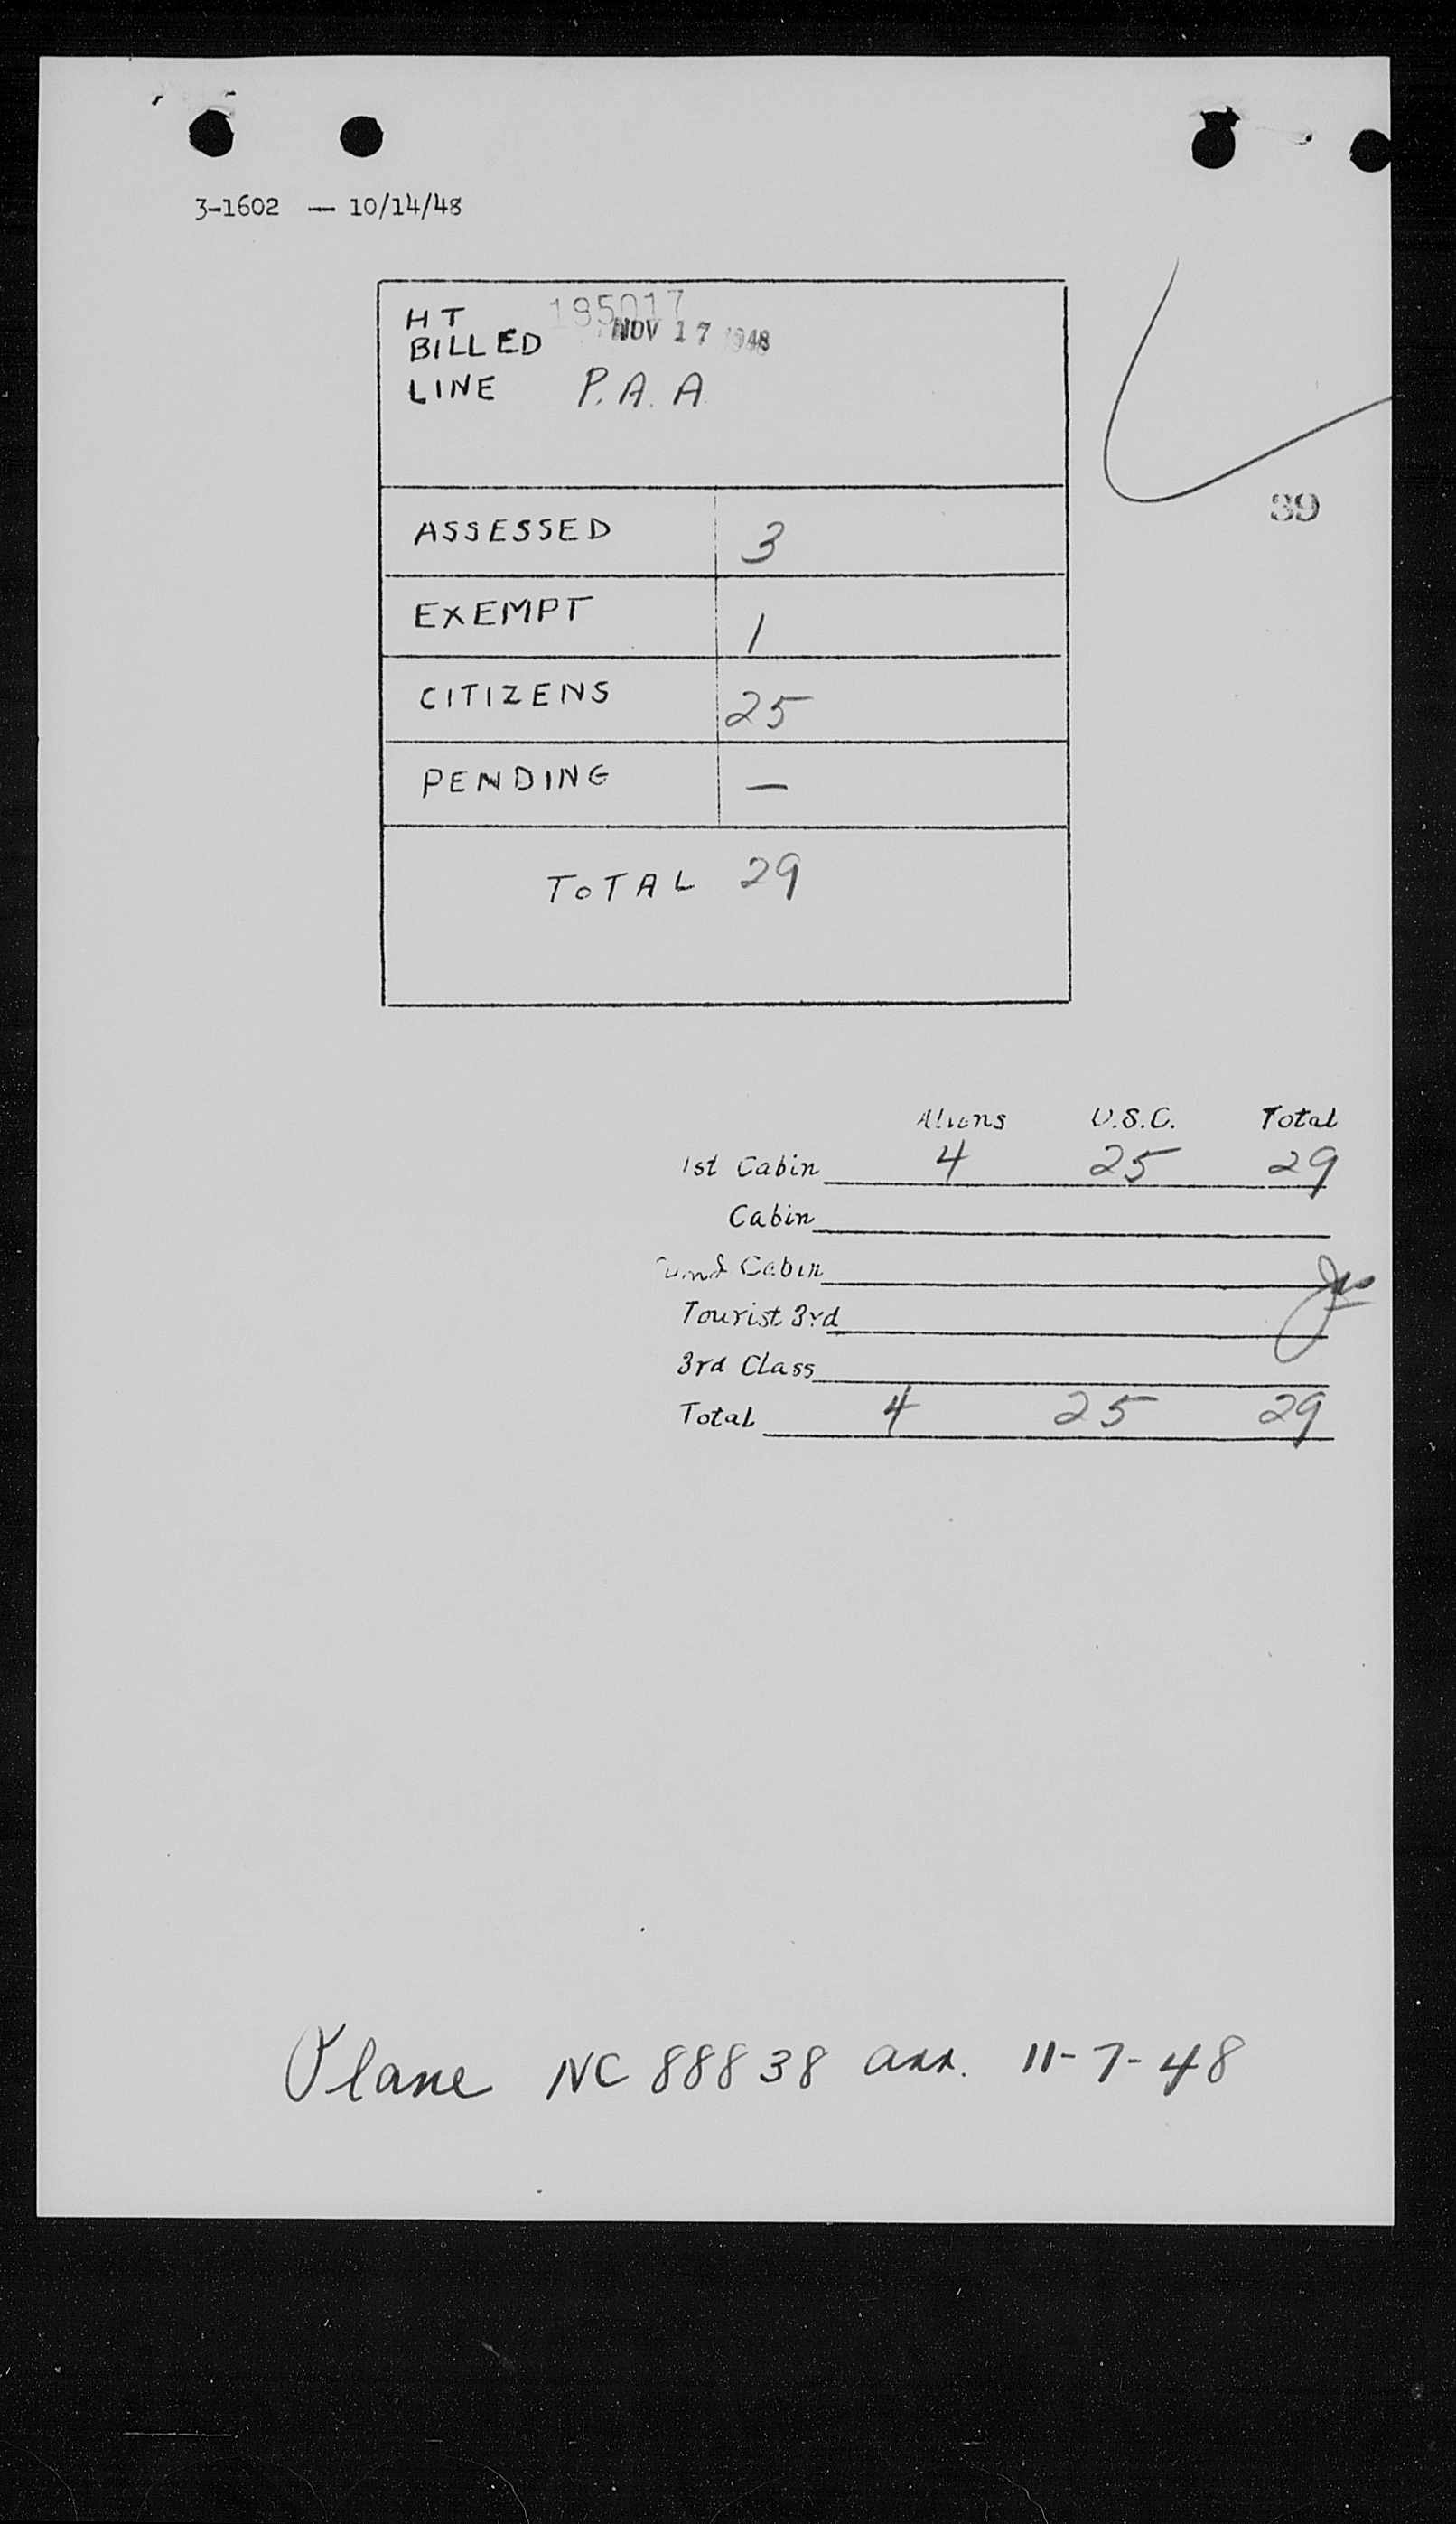 3-1602 — 10/14/48
HT 195017
BILLED NOV 17 1948
LINE P.A.A.
39
ASSESSED 3
EXEMPT 1
CITIZENS 25
PENDING —
TOTAL 29
Aliens U.S.C. Total
1st Cabin 4 25 29
Cabin
Cabin
Tourist 3rd
3rd Class
Total 4 25 29
Plane NC 88838 arr. 11-7-48